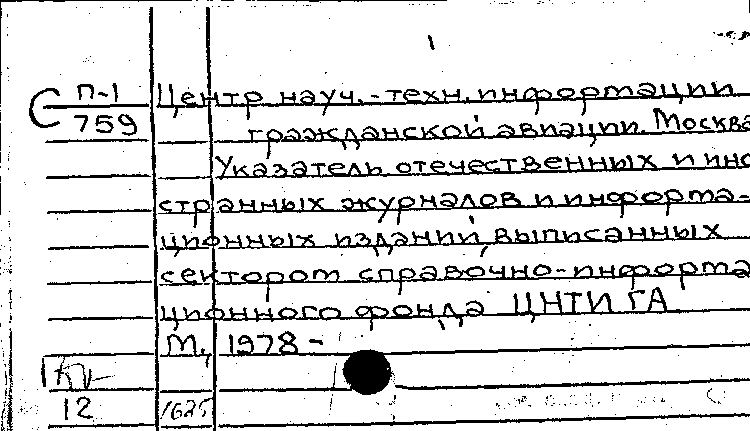 С П-1 Центр науч.-техн. информации
759 гражданской авиации. Москва
Указатель отечественных и ино
странных журналов и информа-
ционных изданий, выписанных
сектором справочно-информа
ционного фонда ЦНТИ ГА
М., 1978 -
12 1625